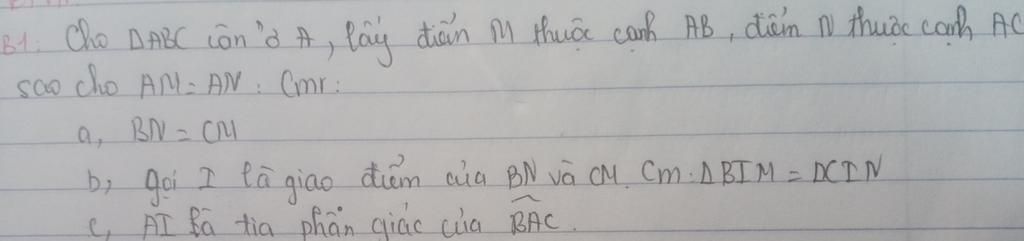 B1: Cho ΔABC cân ở A, lấy điểm M thuộc cạnh AB, điểm N thuộc cạnh AC
sao cho AM = AN. Cmr:
a, BN = CM
b, gọi I là giao điểm của BN và CM. Cm: ΔBIM = ΔCIN
c, AI là tia phân giác của \widehat{BAC}.